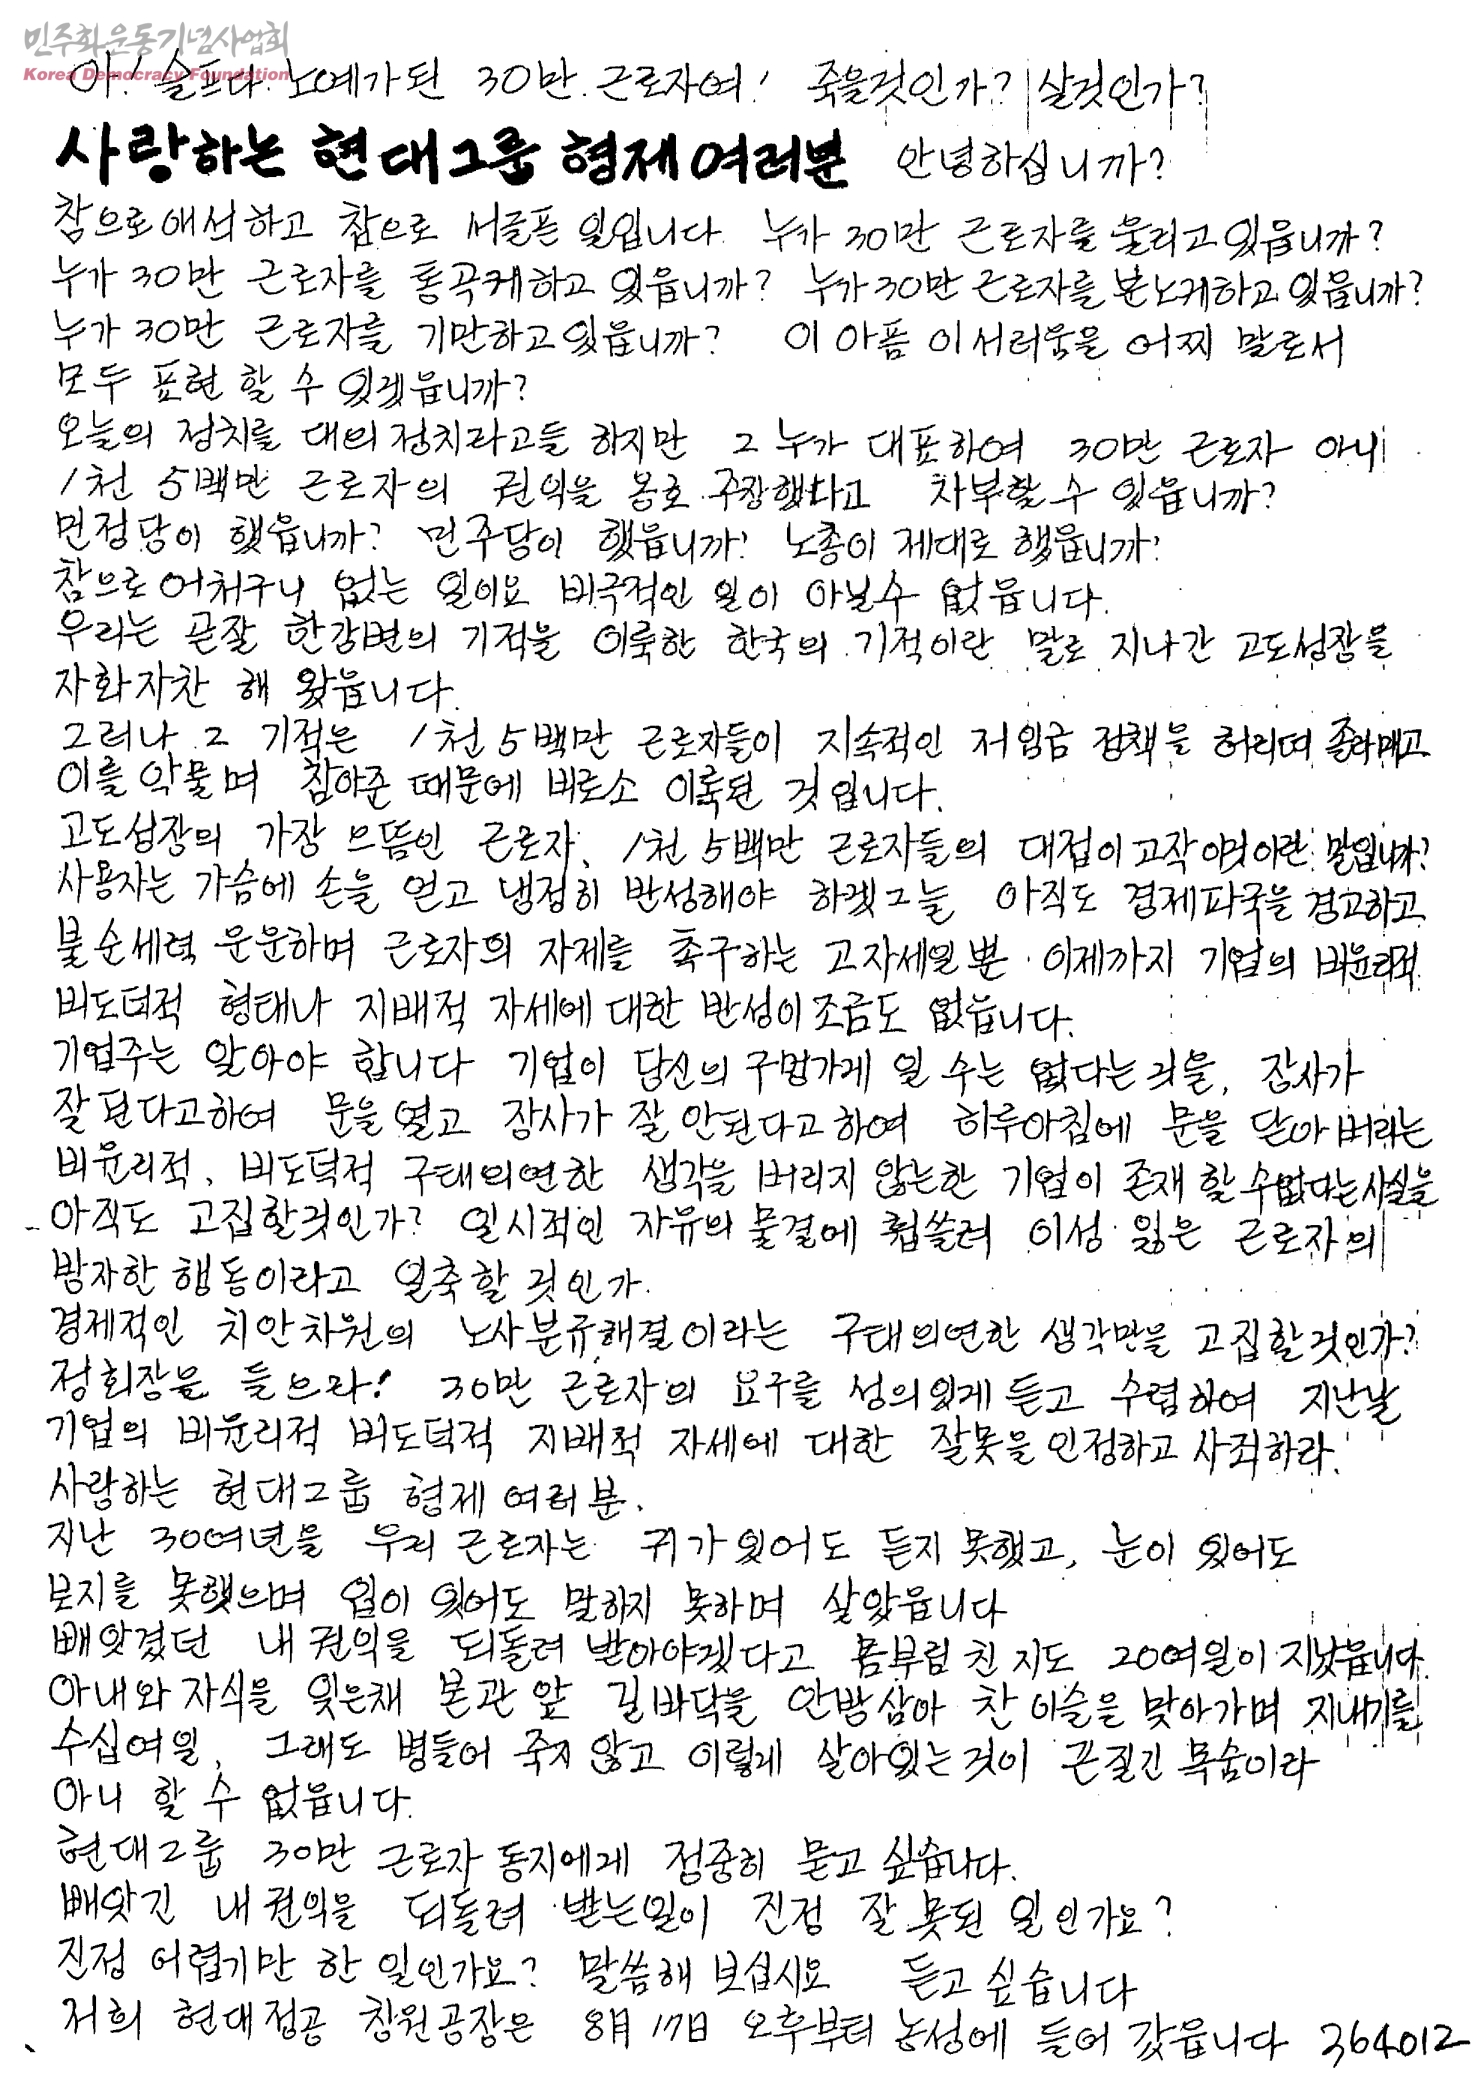 민주화운동기념사업회
Korea Democracy Foundation
아! 슬프다. 노예가 된 30만 근로자여! 죽을것인가? 살것인가?
사랑하는 현대그룹 형제여러분 안녕하십니까?
참으로 애석하고 참으로 서글픈 일입니다. 누가 30만 근로자를 울리고 있읍니까?
누가 30만 근로자를 통곡케하고 있읍니까? 누가 30만 근로자를 분노케하고 있읍니까?
누가 30만 근로자를 기만하고 있읍니까? 이 아픔 이 서러움을 어찌 말로서
모두 표현 할 수 있겠읍니까?
오늘의 정치를 대의 정치라고들 하지만 그 누가 대표하여 30만 근로자 아니
1천 5백만 근로자의 권익을 옹호 주장했다고 차부할 수 있읍니까?
민정당이 했읍니까? 민주당이 했읍니까? 노총이 제대로 했읍니까?
참으로 어처구니 없는 일이요 비극적인 일이 아닐수 없읍니다.
우리는 곧잘 한강변의 기적을 이룩한 한국의 기적이란 말로 지나간 고도성장을
자화자찬 해 왔읍니다.
그러나 그 기적은 1천 5백만 근로자들이 지속적인 저임금 정책을 허리띠 졸라매고
이를 악물며 참아준 때문에 비로소 이룩된 것입니다.
고도성장의 가장 으뜸인 근로자, 1천 5백만 근로자들의 대접이 고작 이것이란 말입니까?
사용자는 가슴에 손을 얹고 냉정히 반성해야 하겠그늘 아직도 경제파국을 경고하고
불순세력 운운하며 근로자의 자제를 촉구하는 고자세일뿐 이제까지 기업의 비윤리적
비도덕적 형태나 지배적 자세에 대한 반성이 조금도 없읍니다.
기업주는 알아야 합니다 기업이 당신의 구멍가게 일 수는 없다는 것을, 장사가
잘 된다고하여 문을 열고 장사가 잘 안된다고 하여 하루아침에 문을 닫아 버리는
비윤리적, 비도덕적 구태의연한 생각을 버리지 않는한 기업이 존재 할 수없다는 사실을
아직도 고집할것인가? 일시적인 자유의 물결에 휩쓸려 이성 잃은 근로자의
방자한 행동이라고 일축할 것인가.
경제적인 치안차원의 노사분규해결이라는 구태의연한 생각만을 고집할것인가?
정회장은 들으라! 30만 근로자의 요구를 성의있게 듣고 수렴하여 지난날
기업의 비윤리적 비도덕적 지배적 자세에 대한 잘못을 인정하고 사죄하라.
사랑하는 현대그룹 형제 여러분.
지난 30여년을 우리 근로자는 귀가 있어도 듣지 못했고, 눈이 있어도
보지를 못했으며 입이 있어도 말하지 못하며 살았읍니다
빼앗겼던 내 권익을 되돌려 받아야겠다고 몸부림 친 지도 20여일이 지났읍니다.
아내와 자식을 잊은채 본관 앞 길바닥을 안방삼아 찬 이슬을 맞아가며 지내기를
수십여일, 그래도 병들어 죽지 않고 이렇게 살아있는 것이 끈질긴 목숨이라
아니 할 수 없읍니다.
현대그룹 30만 근로자 동지에게 정중히 묻고 싶습니다.
빼앗긴 내 권익을 되돌려 받는일이 진정 잘 못된 일인가요?
진정 어렵기만 한 일인가요? 말씀해 보십시요 듣고 싶습니다
저희 현대정공 창원공장은 8月 17日 오후부터 농성에 들어 갔읍니다 364012